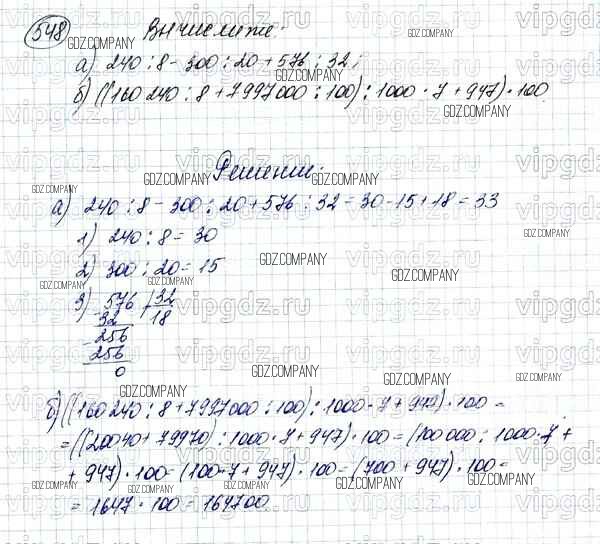 548 Вычислите:
а) 240 : 8 - 300 : 20 + 576 : 32;
б) ((160 240 : 8 + 7997000 : 100) : 1000 · 7 + 947) · 100.
Решение:
а) 240 : 8 - 300 : 20 + 576 : 32 = 30 - 15 + 18 = 33
1) 240 : 8 = 30
2) 300 : 20 = 15
3) 576 | 32
- 32 | 18
- 256
256
0
б) ((160 240 : 8 + 7997000 : 100) : 1000 · 7 + 947) · 100 =
= ((20040 + 79970) : 1000 · 7 + 947) · 100 = (100 000 : 1000 · 7 +
+ 947) · 100 = (100 · 7 + 947) · 100 = (700 + 947) · 100 =
= 1647 · 100 = 164700
vipgdz.ru
GDZ.COMPANY